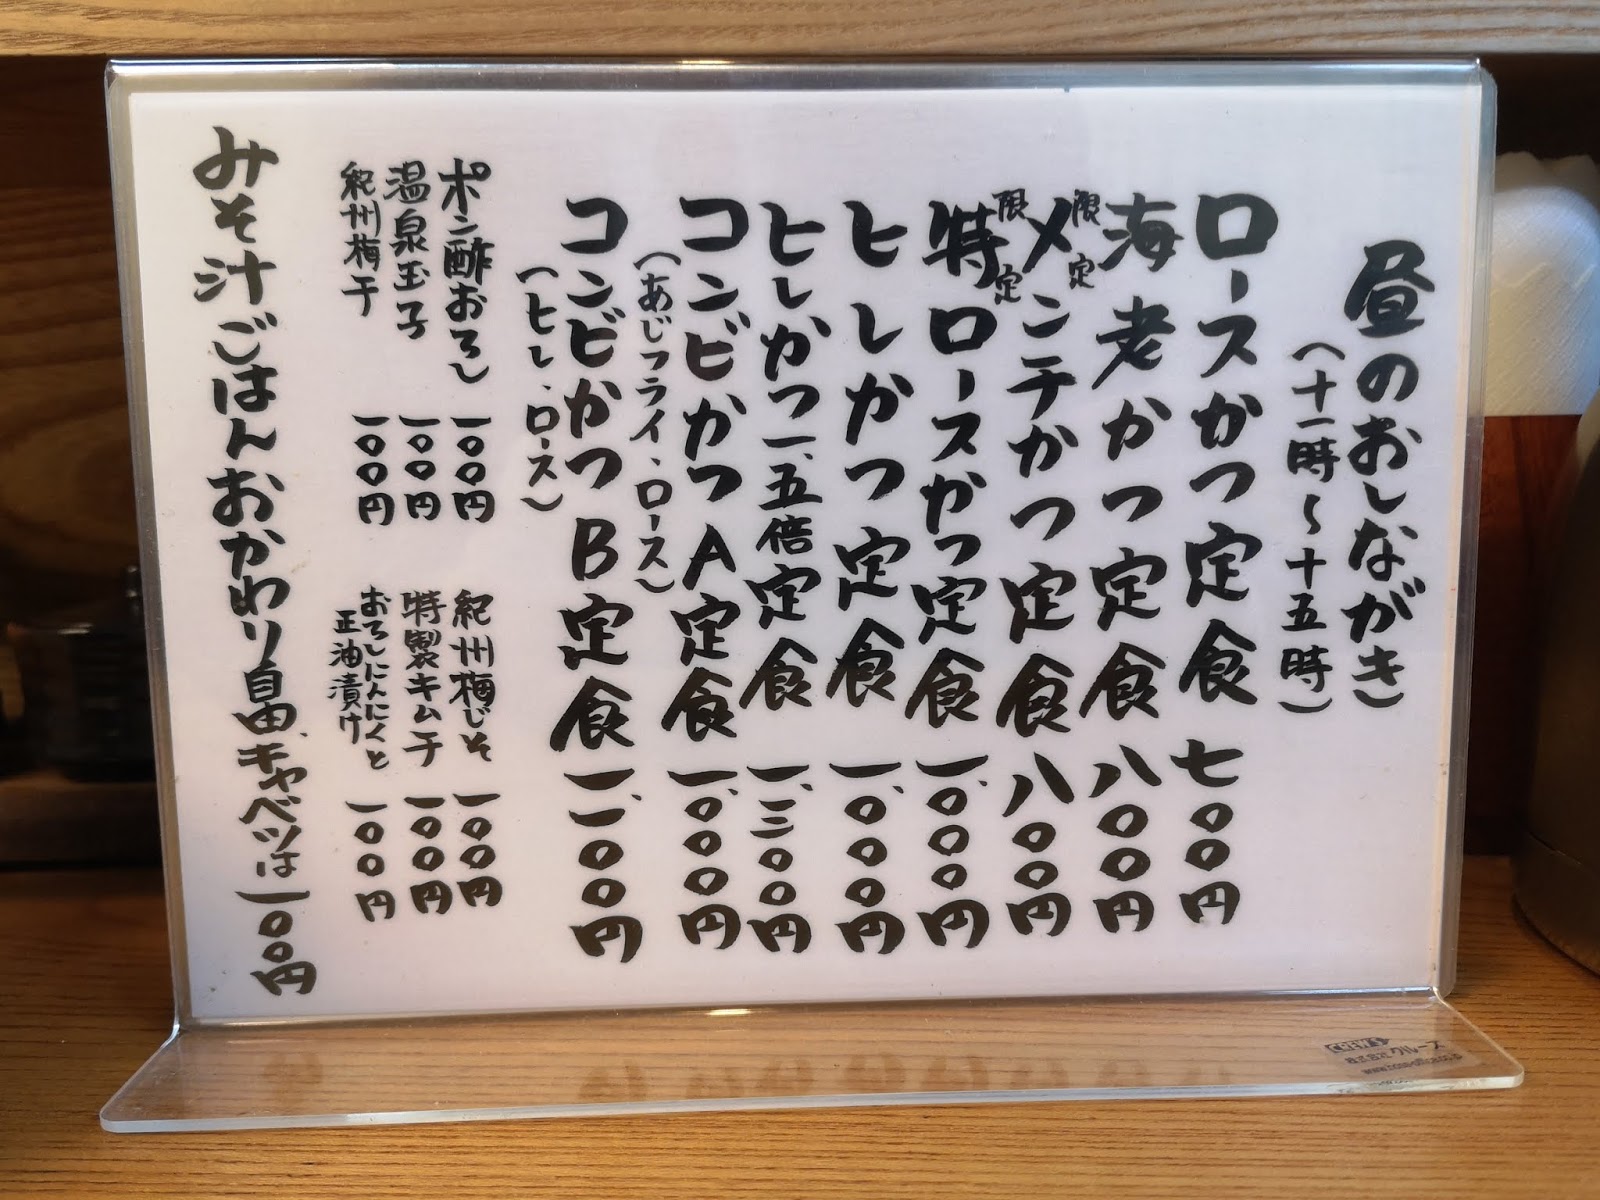 昼のおしながき
(十一時〜十五時)
ロースかつ定食 七〇〇円
海老かつ定食 八〇〇円
限定 メンチかつ定食 八〇〇円
限定 特ロースかつ定食 一、〇〇〇円
ヒレかつ定食 一、〇〇〇円
ヒレかつ一、五倍定食 一、三〇〇円
コンビかつA定食 一、〇〇〇円
(あじフライ、ロース)
コンビかつB定食 一、一〇〇円
(ヒレ、ロース)
ポン酢おろし 一〇〇円
温泉玉子 一〇〇円
紀州梅干 一〇〇円
紀州梅じそ 一〇〇円
特製キムチ 一〇〇円
おろしにんにくと
正油漬け 一〇〇円
みそ汁ごはんおかわり自由、キャベツは一〇〇円
株式会社クルーズ